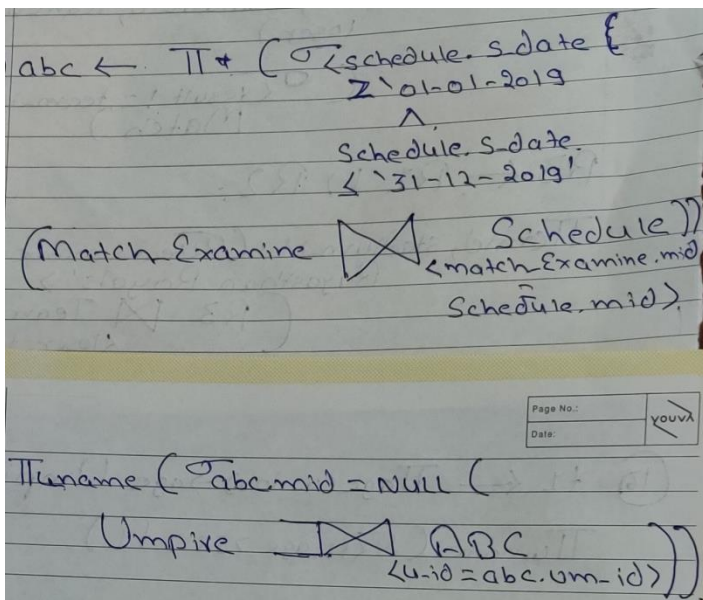 abc ← π* (σ<schedule.s_date {
≥ '01-01-2019
∧
Schedule.s_date.
≤ '31-12-2019'
(Match_Examine ⋈ Schedule))
<match_Examine.mid
=
Schedule.mid>
Page No.:
Date:
youva
πuname (σabc.mid = NULL (
Umpire ⟕ ABC
<u_id = abc.um_id>))